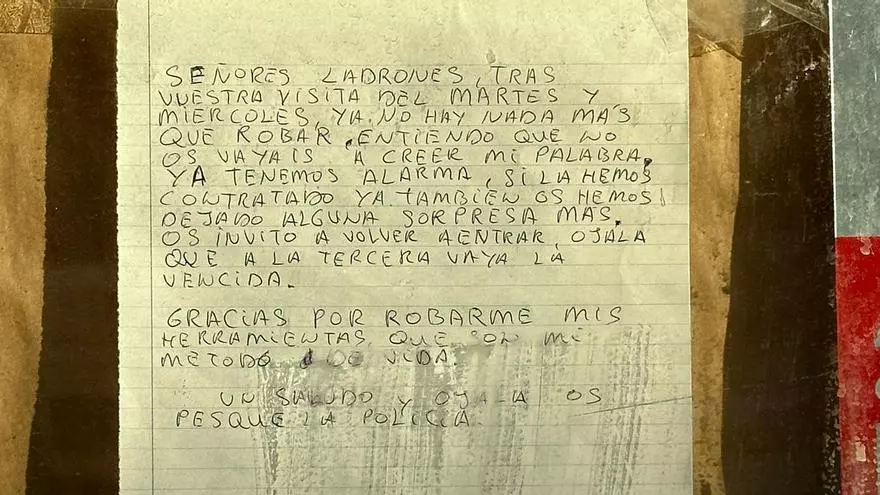 SEÑORES LADRONES, TRAS
VUESTRA VISITA DEL MARTES Y
MIERCOLES, YA NO HAY NADA MAS
QUE ROBAR, ENTIENDO QUE NO
OS VAYAIS A CREER MI PALABRA.
YA TENEMOS ALARMA, SI LA HEMOS
CONTRATADO YA. TAMBIEN OS HEMOS
DEJADO ALGUNA SORPRESA MAS.
OS INVITO A VOLVER A ENTRAR, OJALA
QUE A LA TERCERA VAYA LA
VENCIDA.
GRACIAS POR ROBARME MIS
HERRAMIENTAS QUE SON MI
METODO DE VIDA.
UN SALUDO Y OJALA OS
PESQUE LA POLICIA